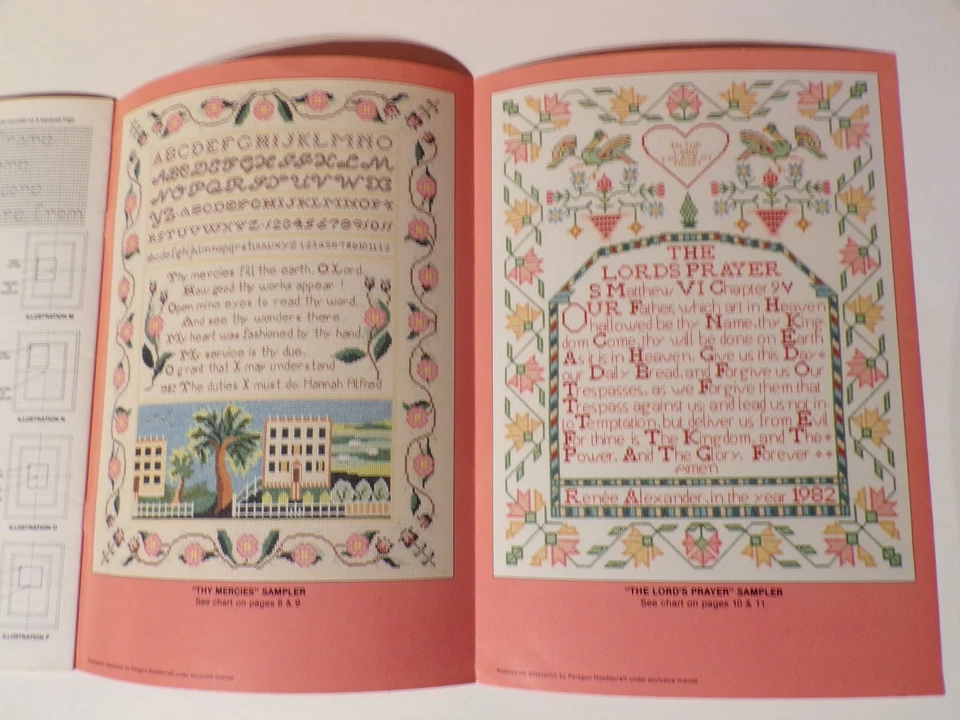 ABCDEFGHIJKLMNO
ABCDEFGHIJKLM
NOPQRSTUVWX
YZ ABCDEFGHIJKLMNOPQ
RSTUVWXYZ 1234567891011
abcdefghijklmnopqrstuvwxyz 123456789101112
Thy mercies fill the earth, O Lord,
How good thy works appear!
Open mine eyes to read thy word,
And see thy wonders there.
My heart was fashioned by thy hand,
My service is thy due,
O grant that I may understand
1982 The duties I must do. Hannah Alfred
"THY MERCIES" SAMPLER
See chart on pages 8 & 9
THE
LORDS PRAYER
S Matthew VI Chapter 9 V
OUR Father, which art in Heaven
hallowed be thy Name, thy King
dom Come, thy will be done on Earth
As it is in Heaven, Give us this Day
our Daily Bread, and Forgive us Our
Trespasses, as we Forgive them that
Trespass against us, and lead us not in
to Temptation, but deliver us from Evil
For thine is The Kingdom, and The
Power, And The Glory, Forever
amen
Renée Alexander, in the year 1982
"THE LORD'S PRAYER" SAMPLER
See chart on pages 10 & 11.
adaptation by Paragon Needlecraft under exclusive license
adaptation by Paragon Needlecraft under exclusive license
ILLUSTRATION M
ILLUSTRATION N
ILLUSTRATION O
ILLUSTRATION P